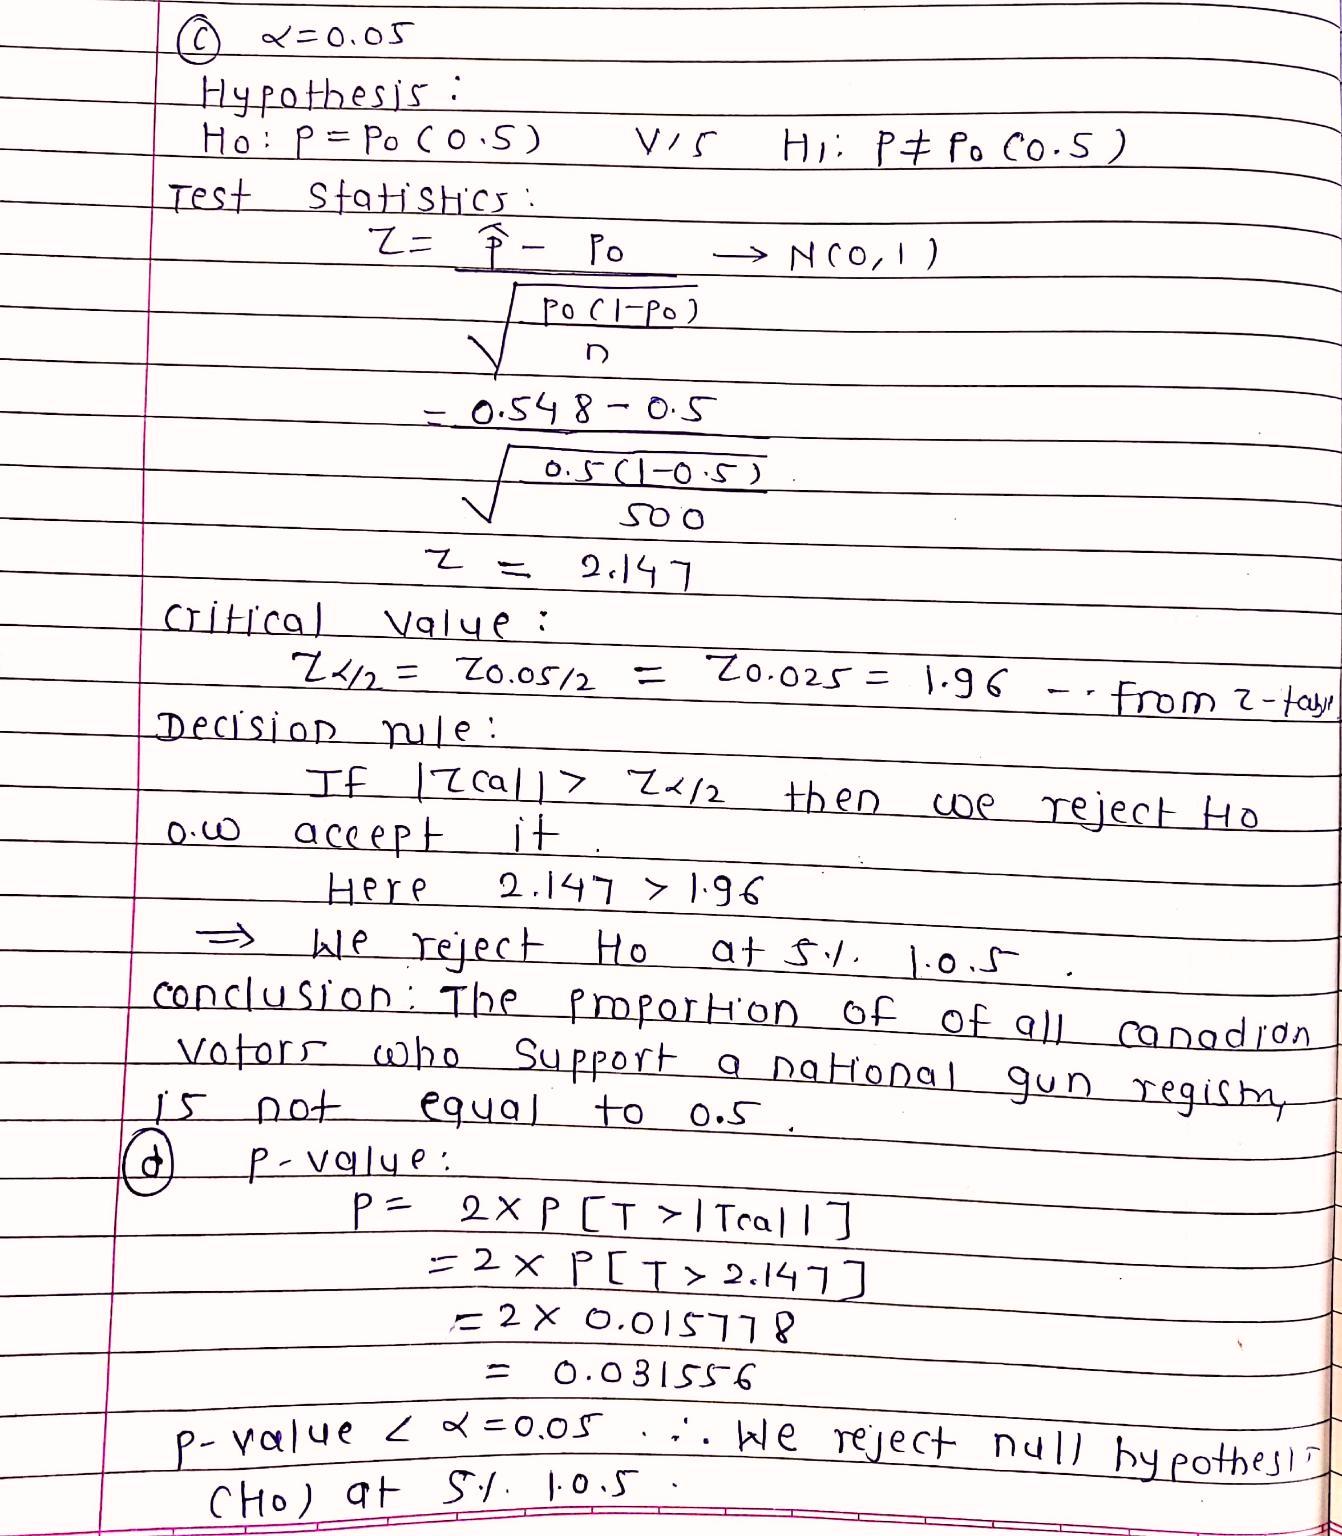 (c) α=0.05
Hypothesis :
Ho: P = Po (0.5) V/S H1: P ≠ Po (0.5)
Test Statistics:
Z = p̂ - Po → N(0,1)
√ Po (1-Po)
n
= 0.548 - 0.5
√ 0.5 (1-0.5)
500
z = 2.147
critical value :
Zα/2 = Z0.05/2 = Z0.025 = 1.96 -- from z-table
Decision rule:
If |Zcal| > Zα/2 then we reject Ho
o.w accept it .
Here 2.147 > 1.96
⇒ We reject Ho at 5.%. l.o.s .
conclusion: The proportion of of all canadian
votors who support a national gun registry
is not equal to 0.5 .
(d) p-value:
P = 2 X P [T > |Tcal|]
= 2 x P[T > 2.147]
= 2 X 0.015778
= 0.031556
p-value < α=0.05 . ∴ We reject null hypothesis
(Ho) at 5%. l.o.s .